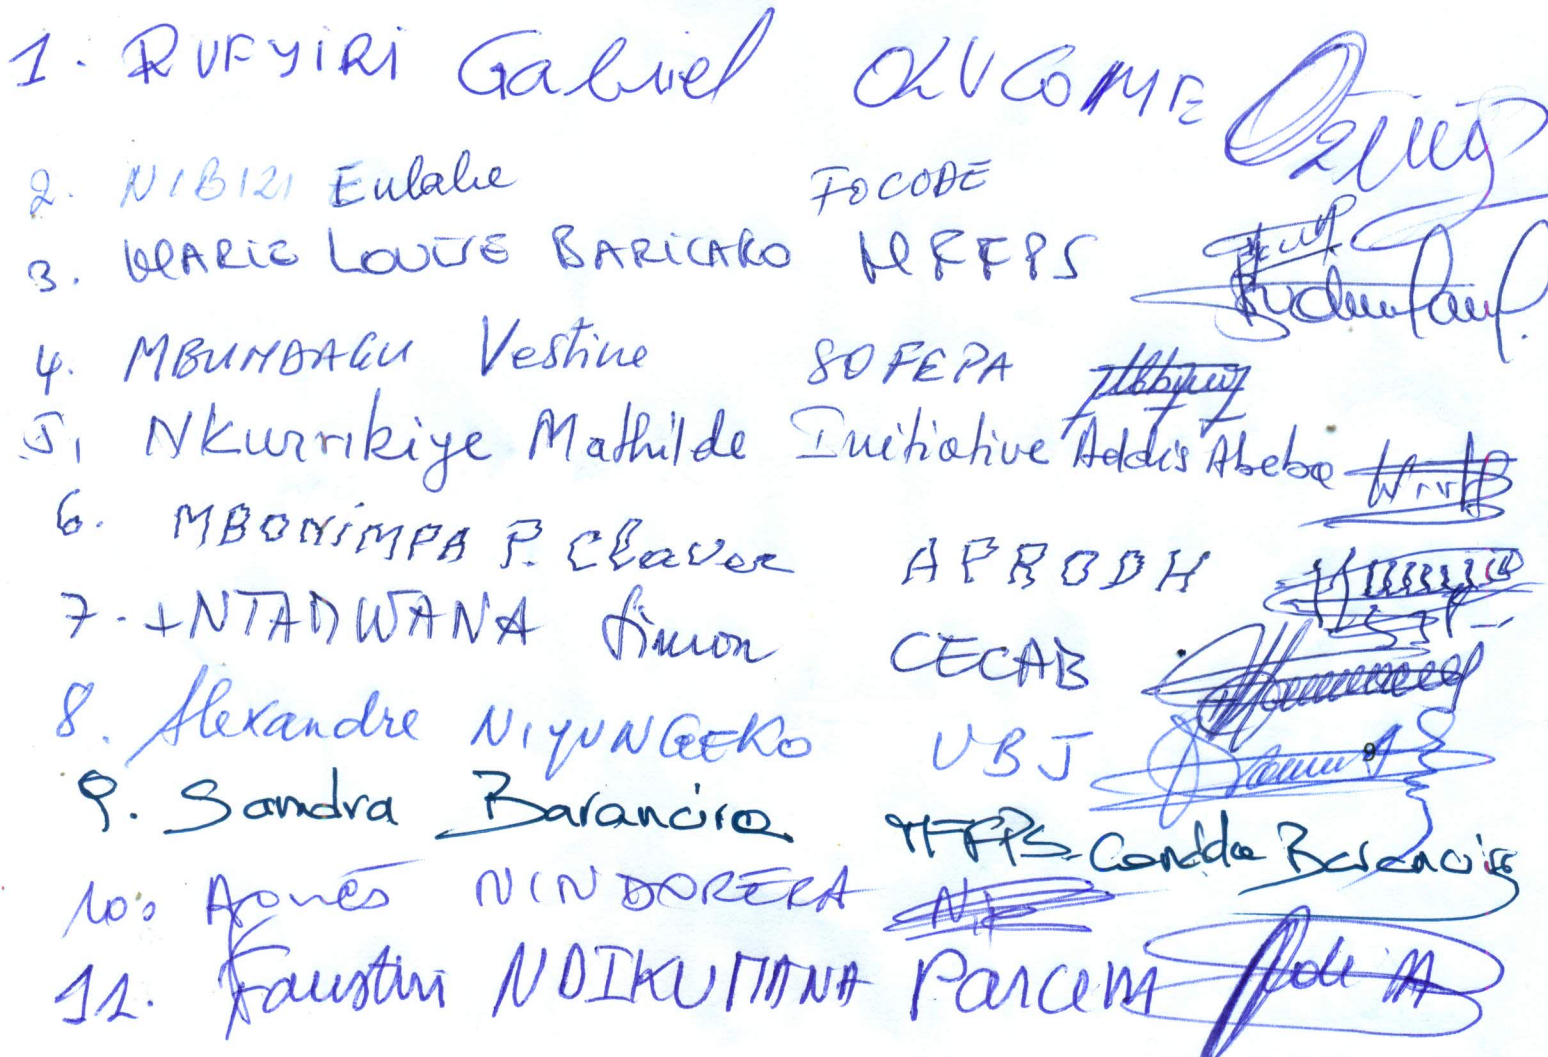 1. RUFYIRI Gabriel OLUCOME
2. NIBIZI Eulalie FOCODE
3. MARIE LOUISE BARICAKO MFFPS
4. MBUNDAGU Vestine SOFEPA
5, Nkurrikiye Mathilde Initiative Addis Abeba
6. MBONIMPA P. Claver APRODH
7. +NTAMWANA Simon CECAB
8. Alexandre NIYUNGEKO UBJ
9. Sandra Barancira MFFPS Barancira
10. Agnès NINDORERA
11. Faustin NDIKUMANA Parcem